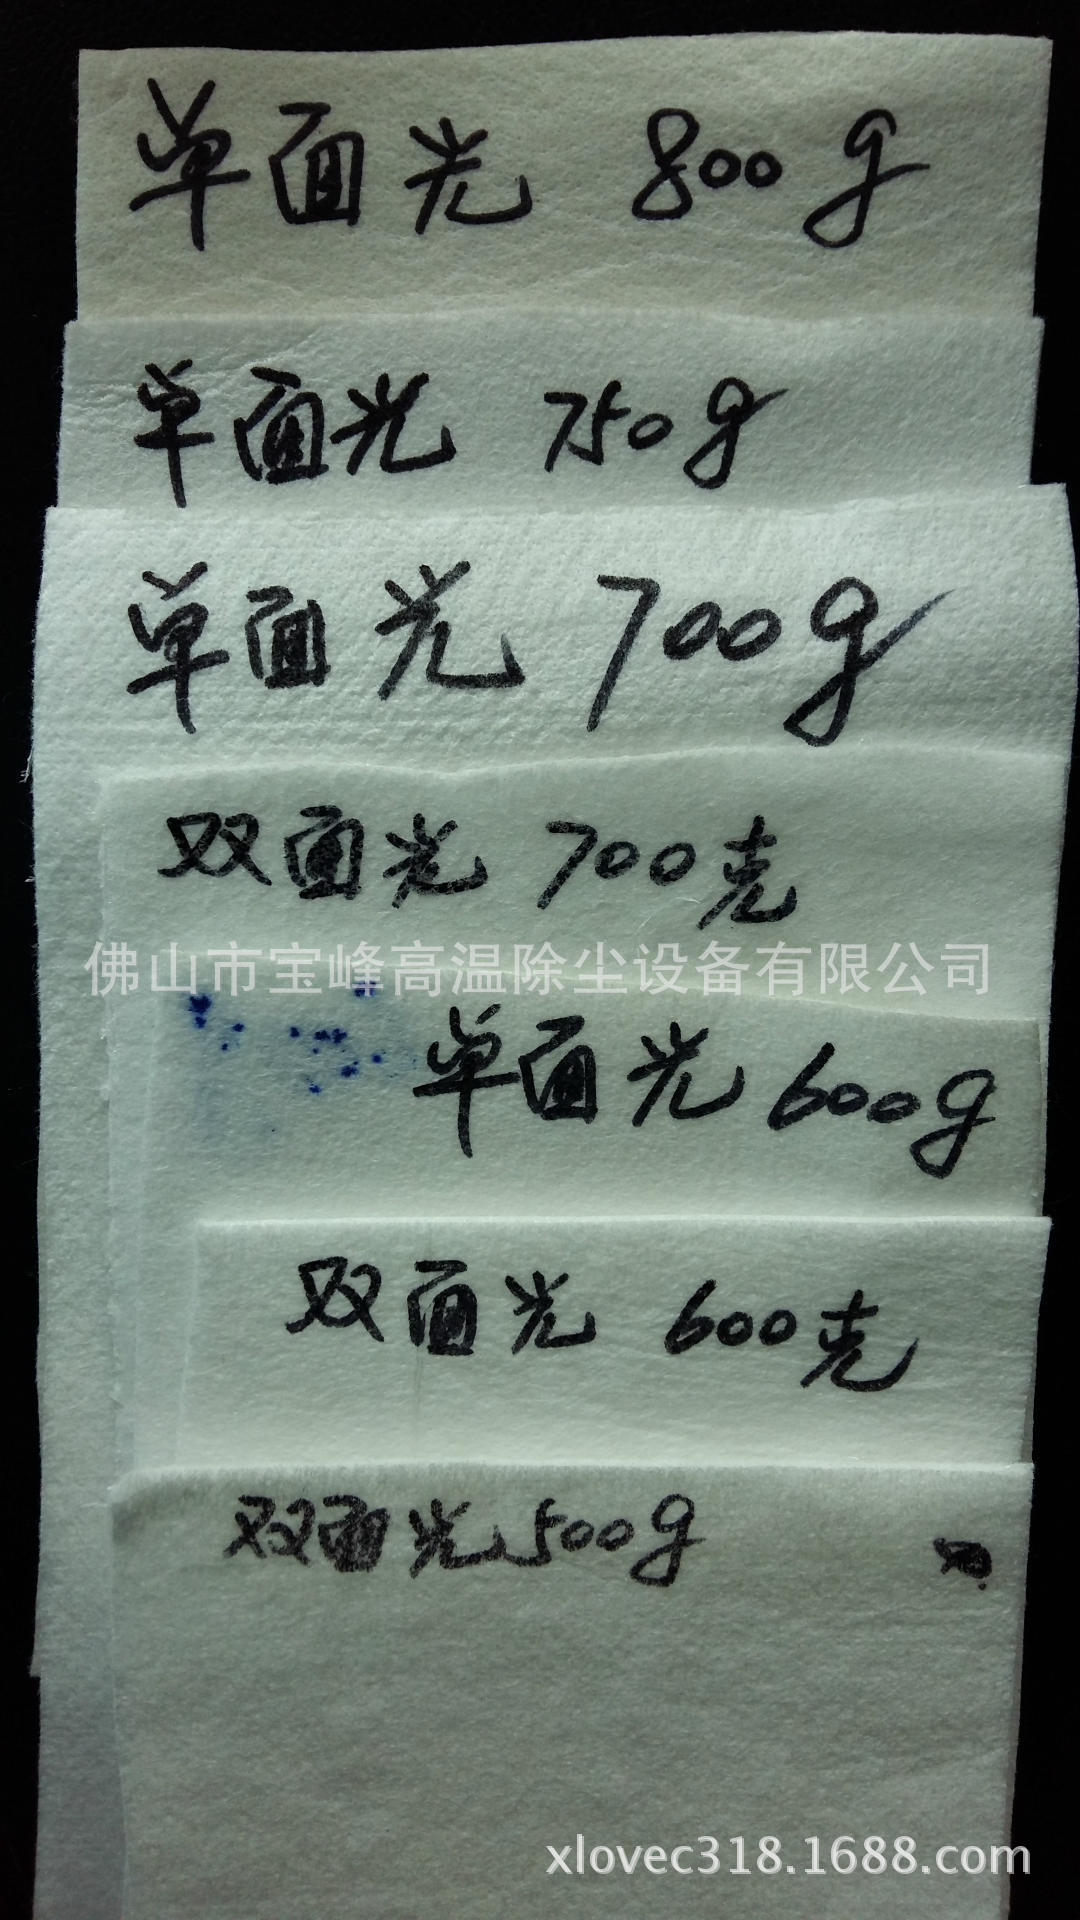 单面光 800g
单面光 750g
单面光 700g
双面光 700克
佛山市宝峰高温除尘设备有限公司
单面光 600g
双面光 600克
双面光 500g
xlovec318.1688.com